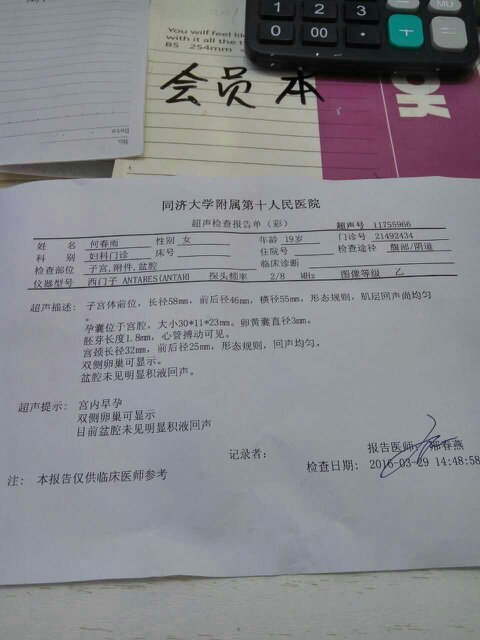 You will feel lik
with it all the t
B5 254mm ×
1 2 3
0 00 · + =
MU
会员本
Date
No
同济大学附属第十人民医院
超声检查报告单（彩） 超声号 11755966
姓 名 何春雨 性别 女 年龄 19岁 门诊号 21492434
科 别 妇科门诊 床号 住院号 检查途径 腹部/阴道
检查部位 子宫,附件,盆腔 临床诊断
仪器型号 西门子 ANTARES(ANTARI 探头频率 2/8 MHz 图像等级 乙
超声描述: 子宫体前位，长径58mm，前后径46mm，横径55mm，形态规则，肌层回声尚均匀
。
孕囊位于宫腔，大小30*11*23mm。卵黄囊直径3mm。
胚芽长度1.8mm，心管搏动可见。
宫颈长径32mm，前后径25mm，形态规则，回声均匀。
双侧卵巢可显示。
盆腔未见明显积液回声。
超声提示: 宫内早孕
双侧卵巢可显示
目前盆腔未见明显积液回声
报告医师: 郦春燕
记录者:
检查日期: 2016-03-29 14:48:58
注: 本报告仅供临床医师参考